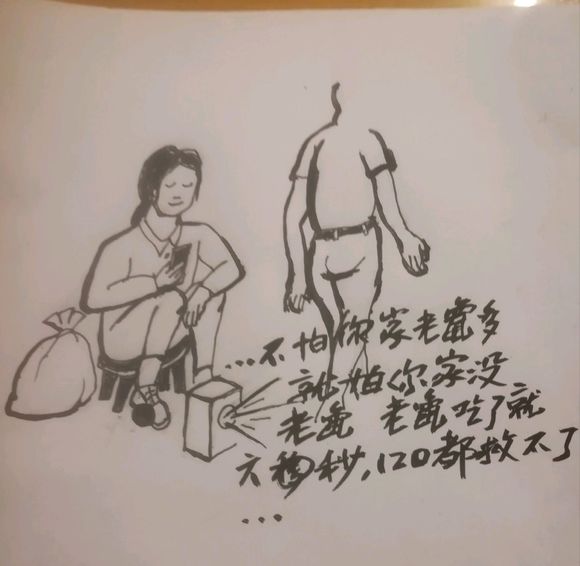 ...不怕你家老鼠多
就怕你家没
老鼠 老鼠吃了就
六秒,120都救不了
...